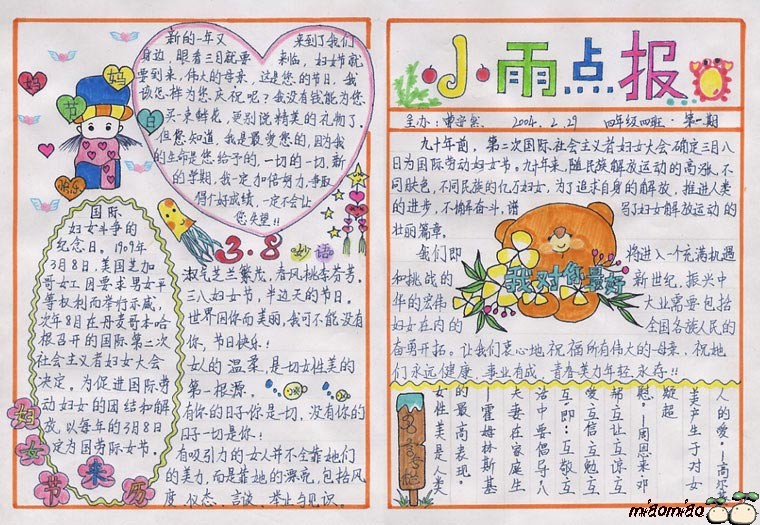 妈妈节日快乐
新的一年又
来到了我们
身边，眼看三月就要
来临，妇女节就
要到来，伟大的母亲，这是您的节日，我
该怎样为您庆祝呢？我没有钱能为您
买一束鲜花，更别说精美的礼物了，
但您知道，我是最爱您的，因为我
的生命是您给予的，一切的一切，新
的学期，我一定加倍努力，争取
得个好成绩，一定不会让
您失望!!
国际
妇女斗争的
纪念日。1909年
3月8日，美国芝加
哥女工因要求男女平
等权利而举行示威，
次年8月在丹麦哥本哈
根召开的国际第二次
社会主义者妇女大会
决定。为促进国际劳
动妇女的团结和解
放，以每年的3月8日
定为国劳际女节。
妇女节来历
3·8 妙语
淑气芝兰繁茂，春风桃李芬芳。
三八妇女节，半边天的节日，
世界因你而美丽，我可不能没有
你，节日快乐！
女人的温柔，是一切女性美的
第一根源。
有你的日子你是一切，没有你的
日子一切是你！
有吸引力的女人并不全靠她们
的美力，而是靠她的漂亮，包括风
度、仪态、言谈、举止与见识。
小雨点报
主办：曹宇然 2004.2.29 四年级四班 第一期
九十年前，第二次国际社会主义者妇女大会确定三月八
日为国际劳动妇女节。九十年来，随民族解放运动的高涨，不
同肤色，不同民族的亿万妇女，为了追求自身的解放，推进人类
的进步，不懈奋斗，谱写了妇女解放运动的
壮丽篇章。
我们即将进入一个充满机遇
和挑战的新世纪，振兴中
华的宏伟大业需要包括
妇女在内的全国各族人民的
奋勇开拓。让我们衷心地祝福所有伟大的母亲，祝她
们永远健康、事业有成、青春美力年轻永存!!
我对你最好
人的爱。—高尔基
美产生于对女
疑超
慰。—周恩来邓
帮互让互谅互
爱互信互勉互
互即：互敬互
活中要倡导八
夫妻在家庭生
—霍姆林斯基
的最高表现。
女性美是人类
名言
miaomiao